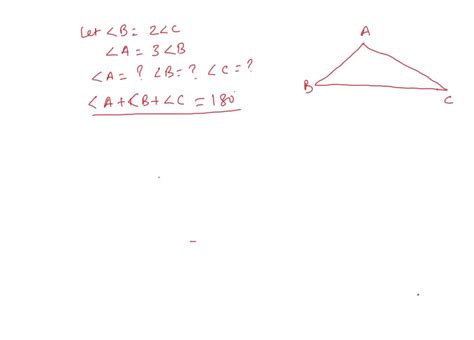 Let ∠B = 2∠C
∠A = 3∠B
∠A = ? ∠B = ? ∠C = ?
∠A + ∠B + ∠C = 180°
A
B
C